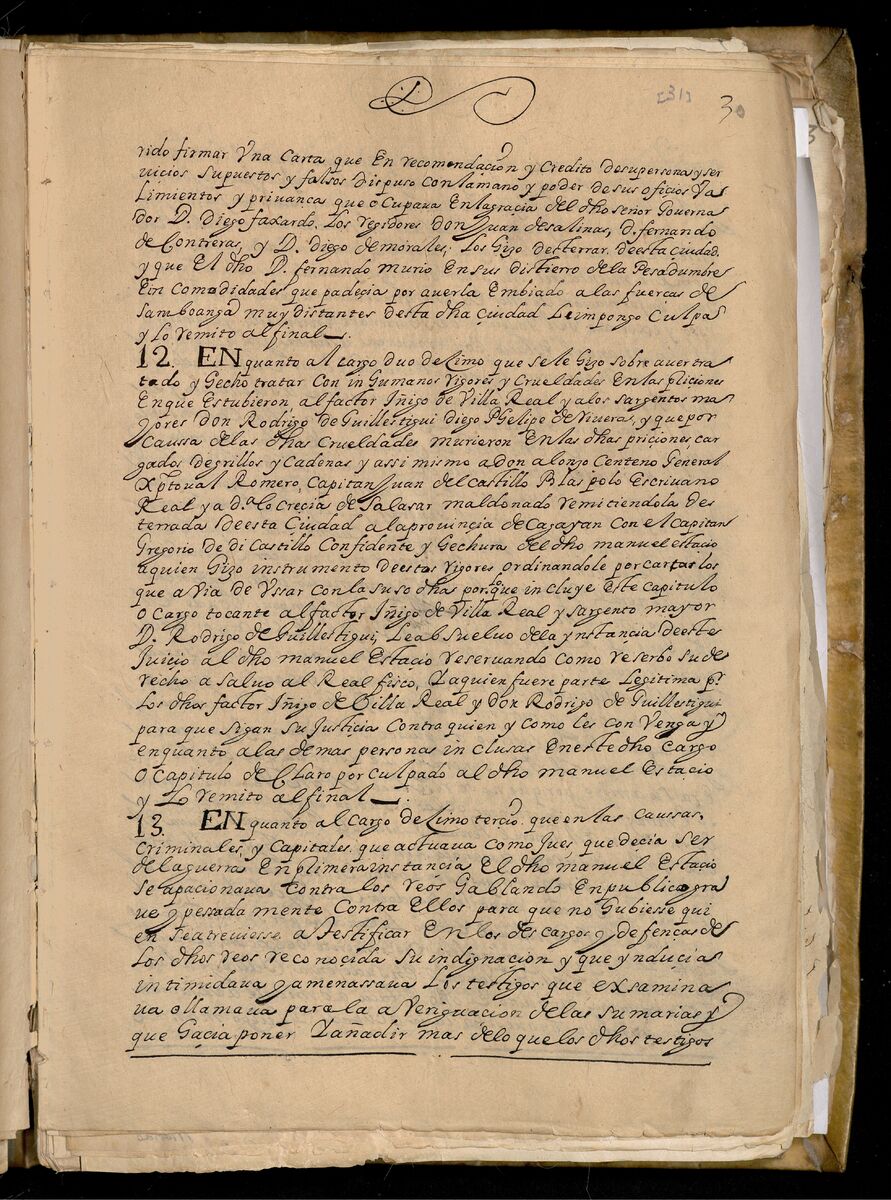 [31] 30
rido firmar Vna Carta que En recomendaçion y Credito desupersona y ser
uicios supuestos y falsos dispuso conlamano y poder desus oficios Va
Limientos y priuanca que oCupaua Enlagracia del dho señor Gouerna
dor D. Diego faxardo. Los regidores Don Juan desalinas, d. fernando
de Contreras, y D. Diego demorales, Los Gizo desterrar deesta ciudad.
y que El dho D. fernando murio Ensus distierro dela Pesadumbre
Ein Comodidades que padecia por auerla Embiado a las fuercas de
Samboanga muy distantes desta dha ciudad Leimpongo Culpa
y Lo remito al final
12. EN quanto al cargo duo deZimo que sele Gizo sobre auer tra
tado y Gecho tratar Con in Gumanos rigores y Crueldades Enlas pliciones
Enque Estubieron al factor Iñigo de Villa Real y alos sargentos ma
yores don Rodrigo de Guillestigui Diego PGelipo de Viuera, y que por
Caussa delas dhas Crueldades murieron Enlas dhas priciones car
gados degrillos y Cadenas y assi mismo a don alonzo Centeno General
Xptoual Romero, Capitan Juan del Castillo Blas polo Escriuano
Real y a d.ª lo crecia de Salasar maldonado remiciendola des
terrada deesta Ciudad alaprouincia de Cagayan Con el Capitan
Gregorio de di Castillo Confidente y Gechura del dho manuel estacio
aquien Gizo instrumento deestos rigores ordinandole por cartas los
que a Via de Vssar con la suso dha porq.º que incluye Este Capitulo
o Cargo tocante al factor Iñigo de Villa Real y Sargento mayor
D. Rodrigo de Guillestigui, Leabsueluo dela ynstancia deeste
Juicio al dho manuel Estacio reseruando como reserbo su de
recho a saluo al Real fisco, Yaquien fuere parte Legitima pr.
Los dhos factor Iñigo de Villa Real y don Rodrigo de Guillestigui
para que sigan su Justicia Contra quien y como les con Venga y
enquanto alas demas personas in clusas Eneste dho Cargo
o Capitulo deClaro por culpado al dho manuel Estacio
y Lo remito al final
13. EN quanto al Cargo deZimo terçio que en las caussas
Criminales y Capitales que actuaua Como Jues que decia ser
delaguerra En plimera instancia El dho manuel Estacio
se apacionaua Contra los reos Gablando En publico gra
ue y pessada mente Contra Ellos para que no Gubiesse qui
en seatreuiesse a testificar En los descargos y defenças de
Los dhos reos reconocida su indignacion y que ynducia
intimidaua y amenassaua Los testigos que exsamina
ua o llamaua para la a Veriguacion delas sumarias y
que Gaçia poner Yañadir mas delo que los dhos testigos